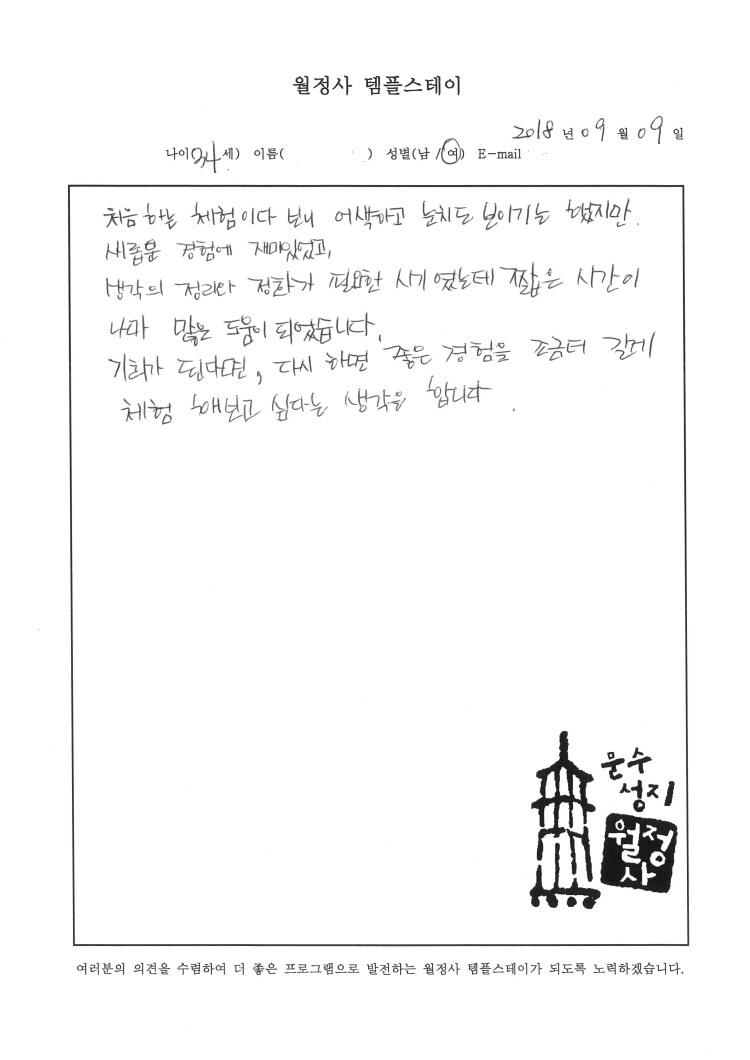 월정사 템플스테이
2018 년 09 월 09 일
나이(34 세) 이름( ) 성별(남 / 여) E-mail
처음 하는 체험이다 보니 어색하고 눈치도 보이기는 했지만.
새롭운 경험에 재미있었고,
생각의 정리와 정화가 필요한 시기 였는데 짧은 시간이
나마 많은 도움이 되었습니다.
기회가 된다면, 다시 하면 좋은 경험을 조금더 길게
체험 해보고 싶다는 생각을 합니다.
문수
성지
월정
사
여러분의 의견을 수렴하여 더 좋은 프로그램으로 발전하는 월정사 템플스테이가 되도록 노력하겠습니다.